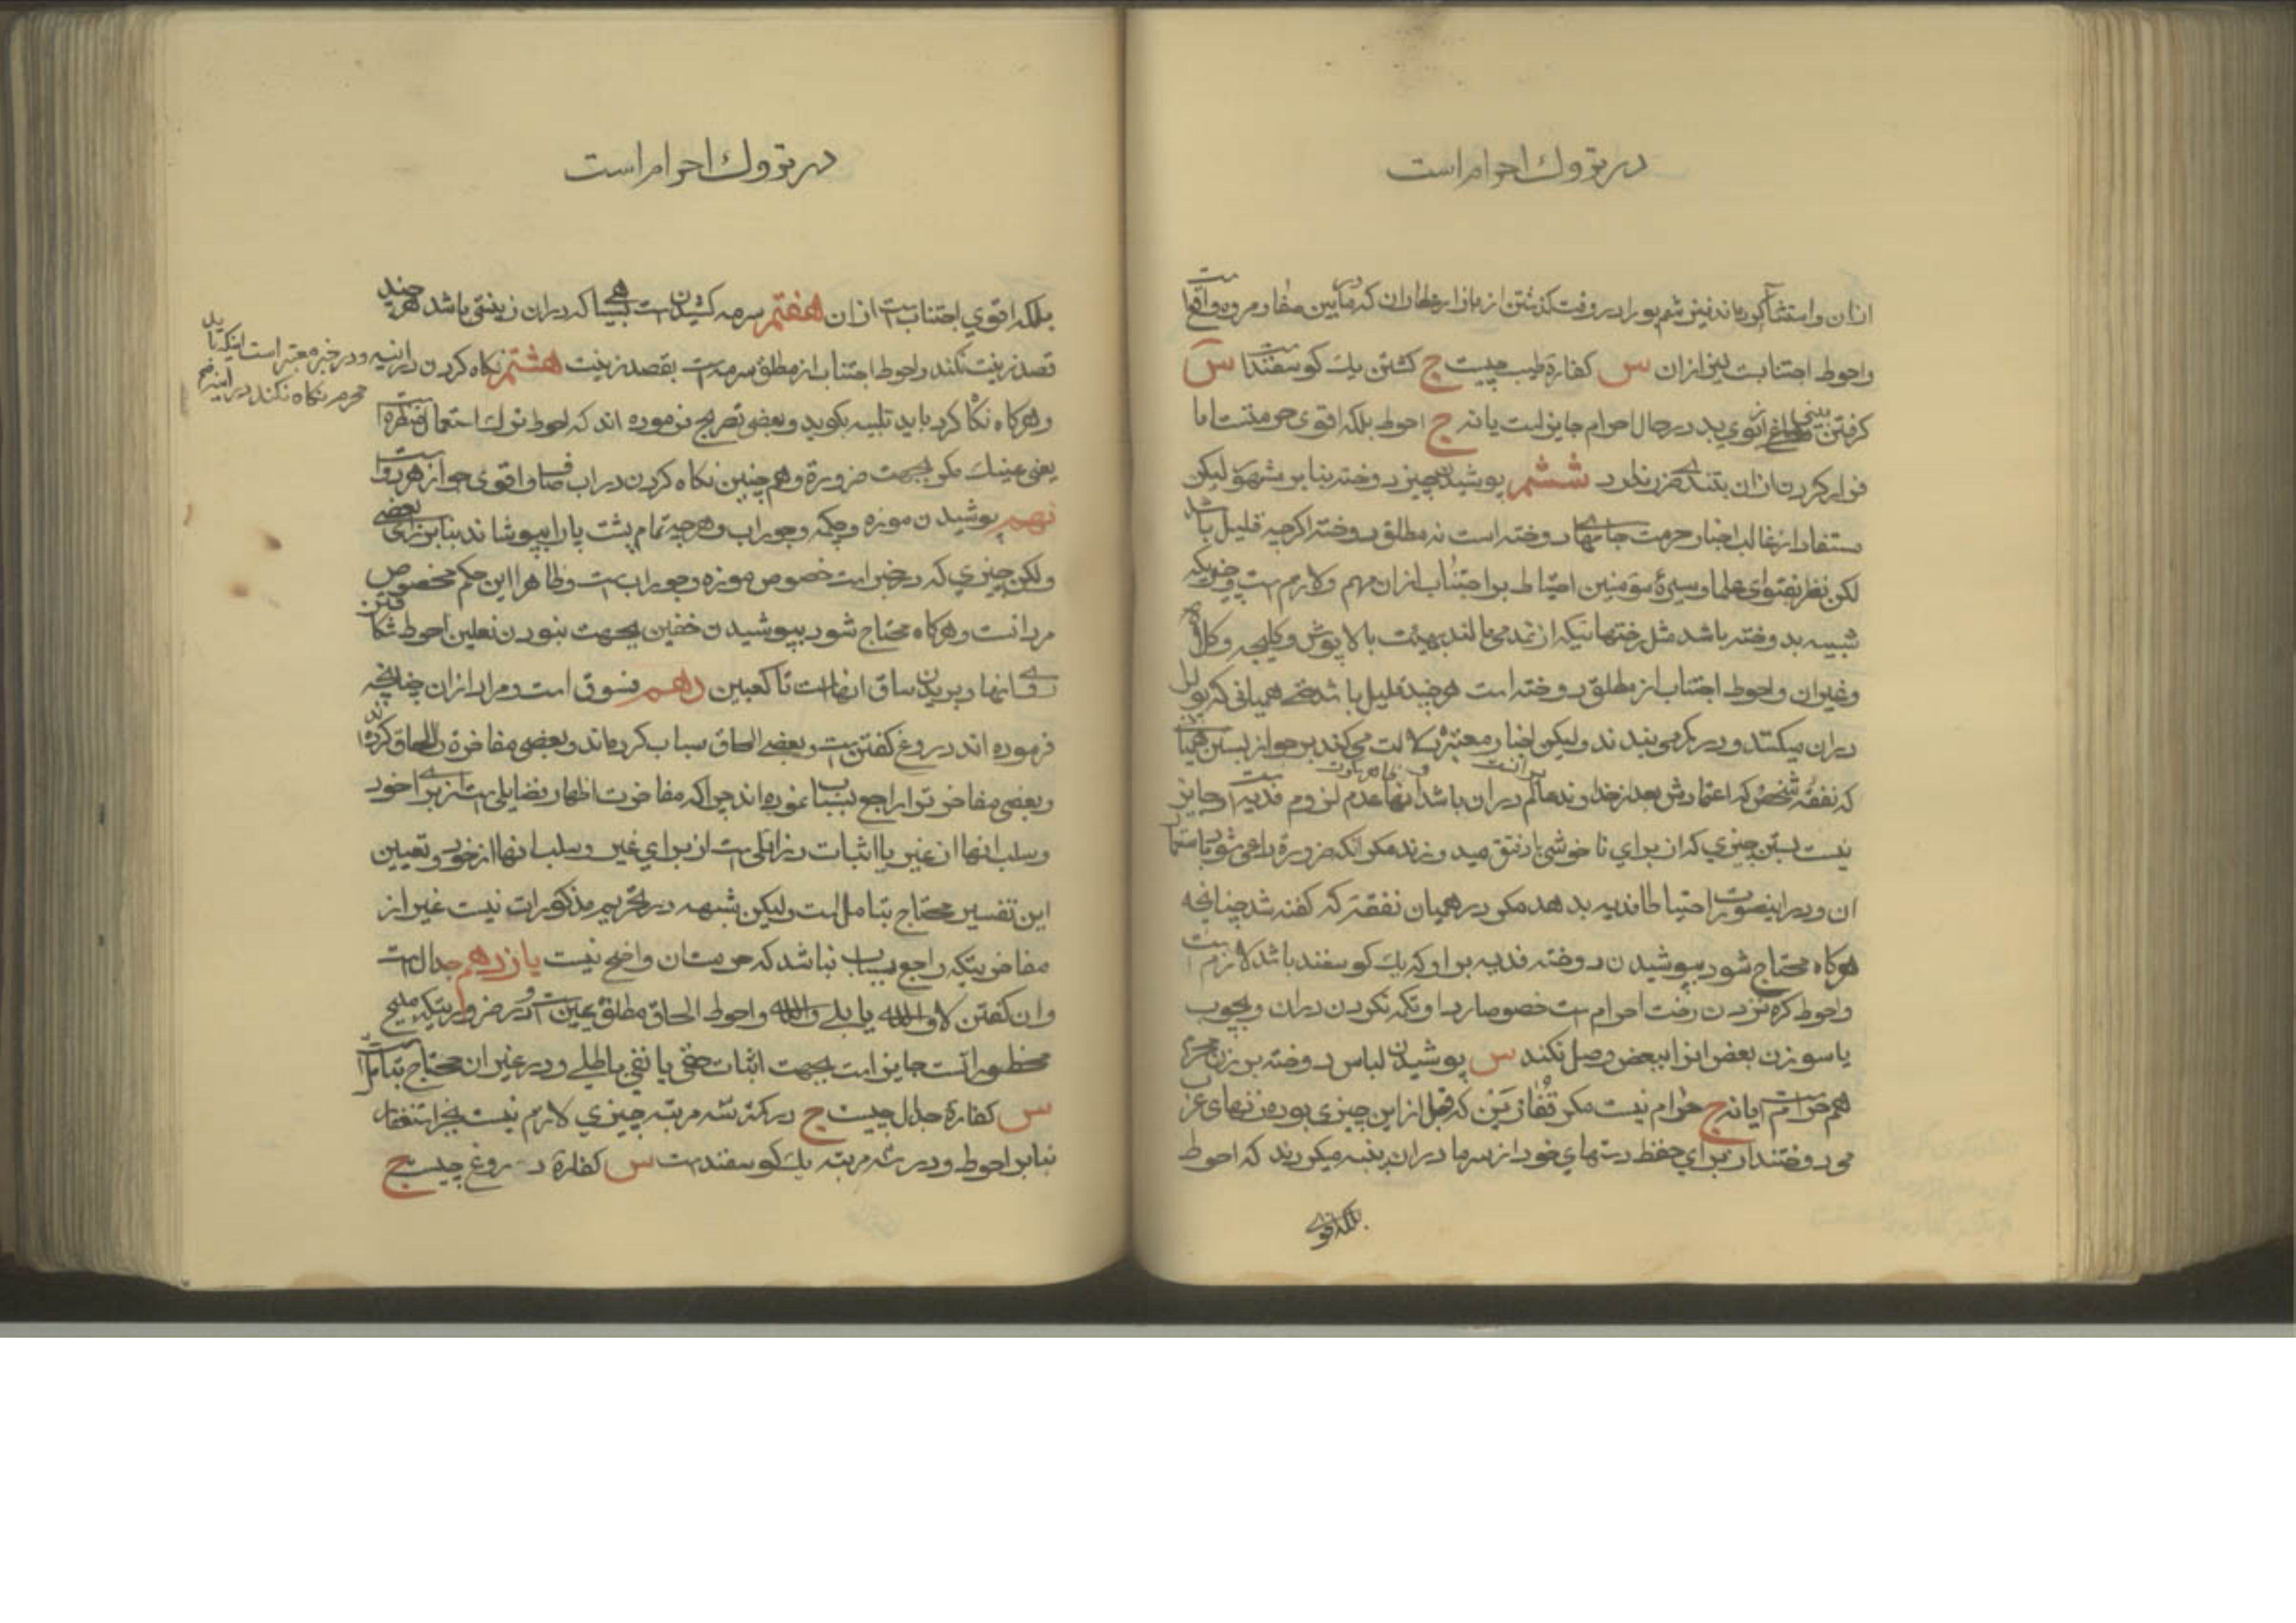 در تروك احرام است
ازان و استثنا كرده‌اند نیز شم بو را در وقت كذشتن از بازار عطاران كه در مابین صفا و مروه واقع است
و احوط اجتنابست نیز ازان س كفارۀ طیب چیست ج كشتن یك كوسفند است س
كرفتن بینی از بوی بد در حال احرام جایز است یا نه ج احوط بلكه اقوی حرمتست اما
فرار كردن ازان بتندی ضرر ندارد ششم پوشیدن چیز دوخته بنابر مشهور لیكن
مستفاد از غالب اخبار حرمت جامهای دوخته است نه مطلق دوخته اكرچه قلیل باشد
لكن نظر بفتوای علما و سیرۀ مؤمنین احتیاط بر اجتناب ازان مهم و لازم است و چیزیكه
شبیه بدوخته باشد مثل رختهائیكه از نمد می‌مالند بهیئت بالاپوش و كلیجه و كلاه
و غیران و احوط اجتناب از مطلق دوخته است هرچند قلیل باشد حتی همیانی كه پول
دران میكنند و در كمر می‌بندند ولیكن اخبار معتبره دلالت می‌كند بر جواز بستن همیان
كه نفقه شخص كه اعتمادش بعد از خداوند عالم دران باشد و ظاهر عدم لزوم فدیه است و جایز
نیست بستن چیزی كه از برای ناخوشی باد فتق میدوزند مكر انكه ضرورة داعی شود باستعمال
ان و در اینصورت احتیاطا فدیه بدهد مكر در همیان نفقه كه كفته شد چنانچه
هركاه محتاج شود بپوشیدن دوخته فدیه بر او كه یك كوسفند باشد لازم است
و احوط كره نزدن رخت احرام است خصوصا ردا و تكمه نكردن دران و بچوب
یا سوزن بعض انرا ببعض وصل نكند س پوشیدن لباس دوخته بر زن محرمه
هم حرام است یا نه ج حرام نیست مكر قفازین كه قبل از این چیزی بوده زنهای عرب
می‌دوختند از برای حفظ دستهای خود از سرما دران پنبه میكردند كه احوط
بلكه اقوی
در تروك احرام است
بلكه اقوی اجتناب است ازان هفتم سرمه كشیدن است بسیاهی كه دران زینتی باشد هرچند
قصد زینت نكند و احوط اجتناب از مطلق سرمه است بقصد زینت هشتم نكاه كردن در اینه
و در خبر معتبر است اینكه باید
محرم نكاه نكند در اینه
و هركاه نكاه كرد باید تلبیه بكوید و بعضی تصریح فرموده‌اند كه احوط ترك استعمال منظره است
یعنی عینك مكر بجهت ضرورة و همچنین نكاه كردن در اب صاف و اقوی جواز هر دو است
نهم پوشیدن موزه و چكمه و جوراب و هرچه تمام پشت پا را بپوشاند بنابر رای بعضی
ولكن چیزی كه در خبر است خصوص موزه و جوراب است و ظاهرا این حكم مخصوص
مردانست و هركاه محتاج شود بپوشیدن خفین بجهت نبودن نعلین احوط شكافتن
انها و بریدن ساق انها است تا كعبین دهم فسوق است و مراد ازان چنانچه
فرموده‌اند دروغ كفتن است و بعضی الحاق سباب كرده‌اند و بعضی مفاخرة را الحاق كرده‌اند
و بعضی مفاخرت را راجع بسباب نموده‌اند چرا كه مفاخرت اظهار فضایلی است از برای خود
و سلب انها از غیر یا اثبات رذائلی است از برای غیر و سلب انها از خود و تعیین
این تفسیر محتاج بتامل است ولیكن شبهه در تحریم مذكورات نیست غیر از
مفاخرتیكه راجع بسباب نباشد كه حرمتش واضح نیست یازدهم جدال است
و ان كفتن لا والله یا بلی والله و احوط الحاق مطلق یمین است و در ضرورتیكه مبیح
محظورات است جایز است بجهت اثبات حقی یا نفی باطلی و در غیر ان محتاج بتامل است
س كفارۀ جدال چیست ج در كمتر سه مرتبه چیزی لازم نیست بجز استغفار
بنابر احوط و در سه مرتبه یك كوسفند است س كفارۀ دروغ چیست ج